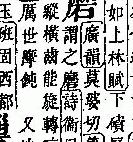 下磧
如上林賦
磨
廣韻莫婆切
謂之磨詩衞風
縱橫齒能旋轉
厲世摩鈍又
玉班固西都